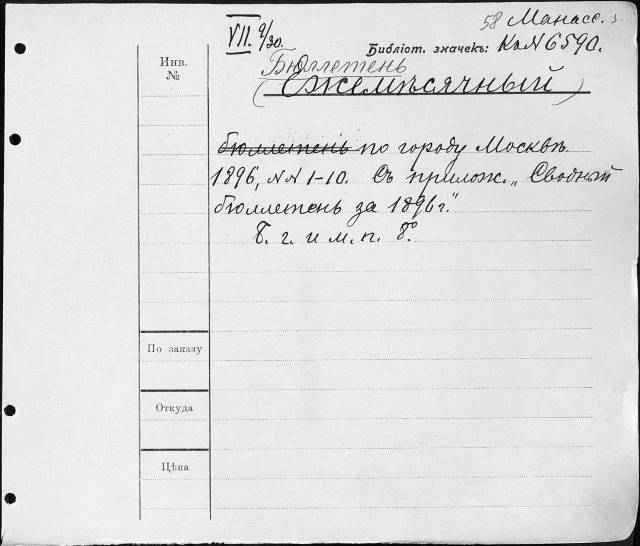 VII. 9/30.
58 Манасс.
Библіот. значекъ: Кп N 6590.
Инв.
№
Бюллетень
(Ежемѣсячный)
бюллетень по городу Москвѣ
1896, NN 1-10. Съ прилож. „Сводный
бюллетень за 1896 г."
Б. г. и м. п. 8°.
По заказу
Откуда
Цѣна